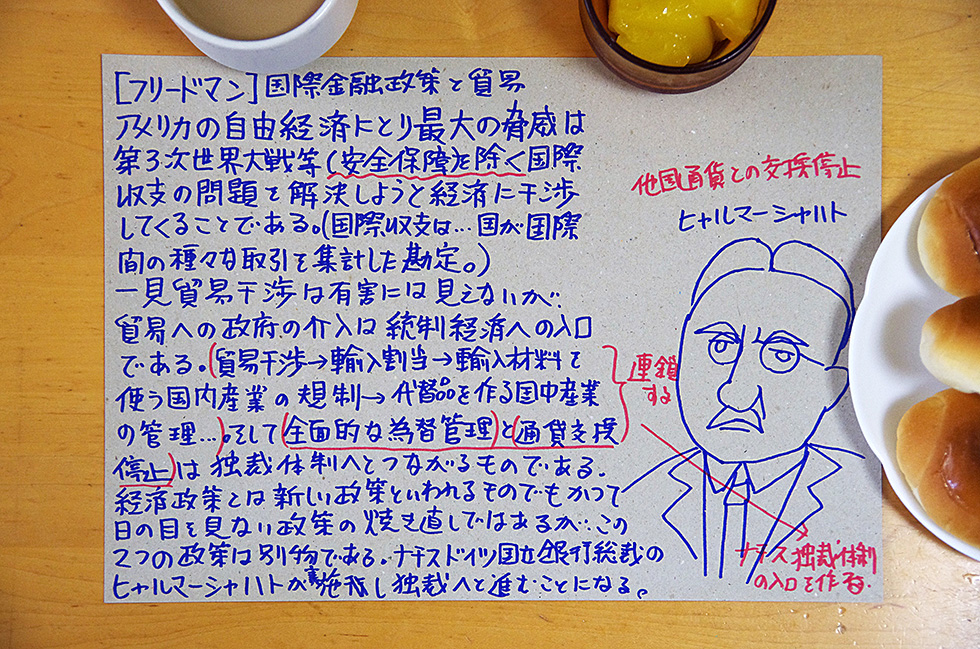 [フリードマン]国際金融政策と貿易
アメリカの自由経済にとり最大の脅威は
第3次世界大戦等(安全保障)を除く国際
収支の問題を解決しようと経済に干渉
してくることである。(国際収支は…国が国際
間の種々な取引を集計した勘定。)
一見貿易干渉は有害には見えないが…
貿易への政府の介入は統制経済への入口
である。(貿易干渉→輸入割当→輸入材料を
使う国内産業の規制→代替品を作る国中産業
の管理…)。そして(全面的な為替管理)と(通貨支援
停止)は独裁体制へとつながるものである。
経済政策とは新しい政策といわれるものでもかつて
日の目を見ない政策の焼き直しではあるが…この
2つの政策は別物である。ナチスドイツ国立銀行総裁の
ヒャルマーシャハトが実施し独裁へと進むことになる。
連鎖
する
他国通貨との交換停止
ヒャルマーシャハト
ナチス独裁体制
の入口を作る。